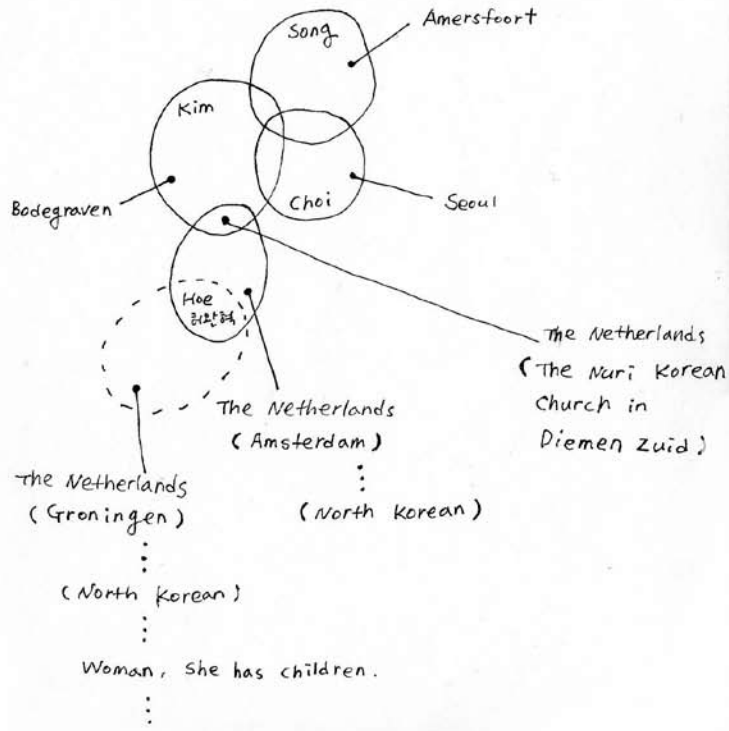 Song
Amersfoort
Kim
Choi
Seoul
Bodegraven
Hoe
허완혁
The Netherlands
(The Nuri Korean
Church in
Diemen Zuid)
The Netherlands
(Amsterdam)
(North Korean)
The Netherlands
(Groningen)
(North Korean)
Woman, She has children.